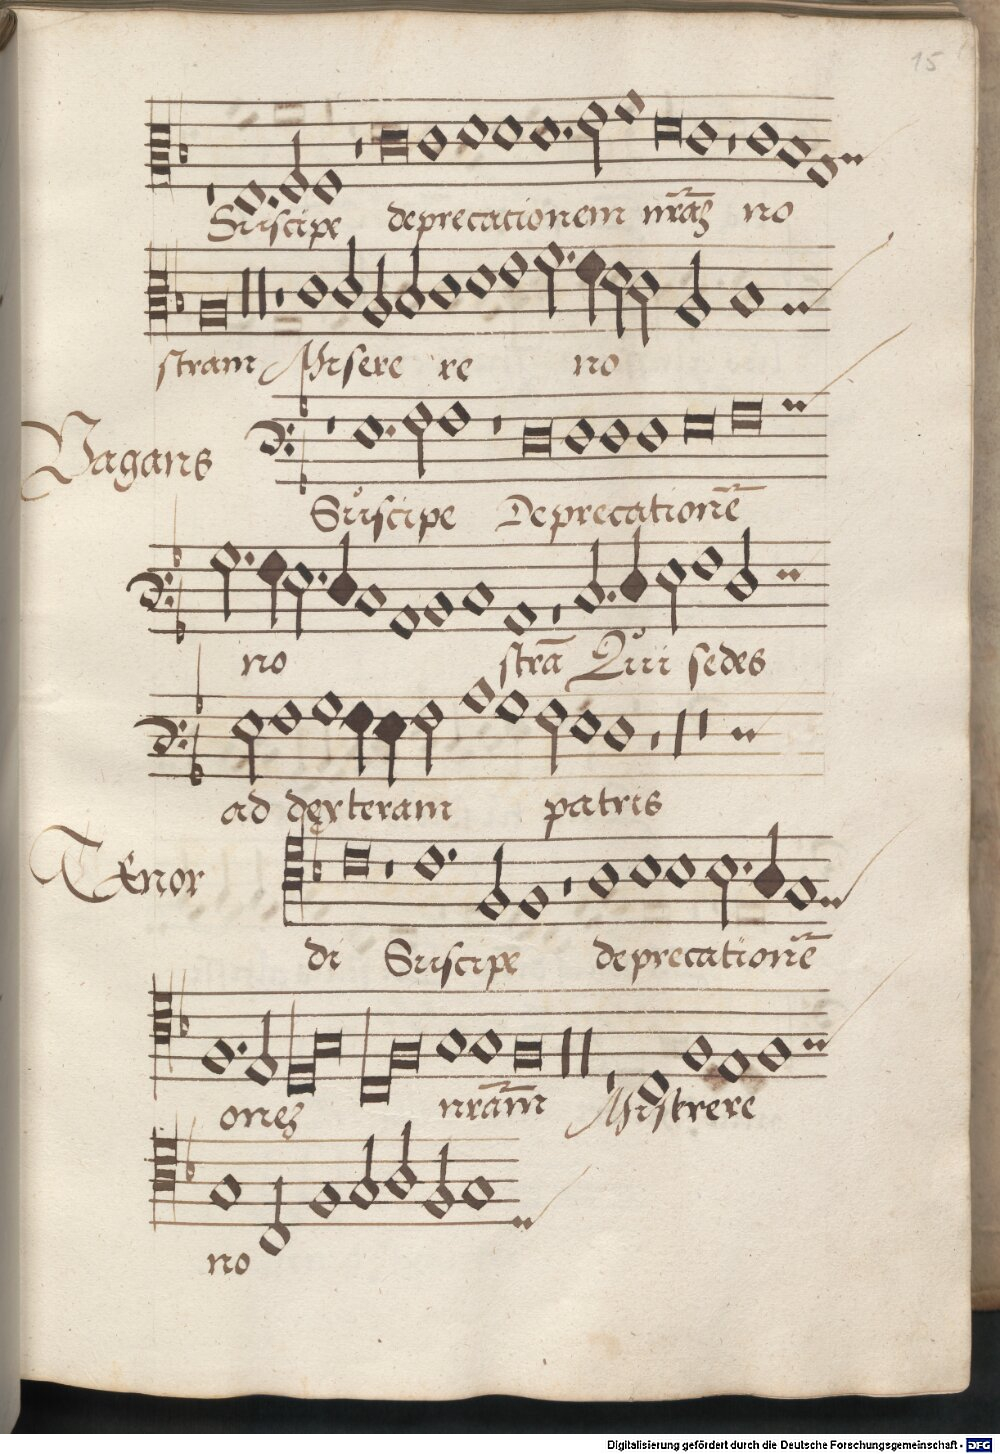 15
Suscipe deprecationem nr̃aʒ no
stram Misere re no
Vagans
Suscipe Deprecationē
no strā Qui sedes
ad dexteram patris
Tenor
di Suscipe deprecationē
oneʒ nrãm Miserere
no
Digitalisierung gefördert durch die Deutsche Forschungsgemeinschaft - DFG